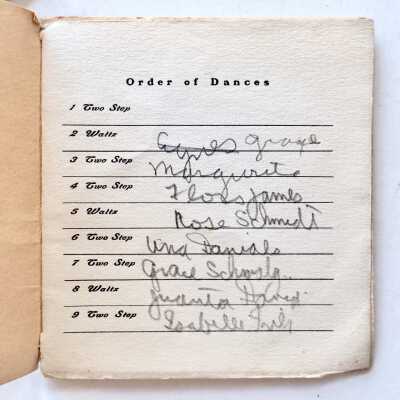 Order of Dances
1 Two Step
2 Waltz Agnes Grace
3 Two Step Marguerite
4 Two Step Floss James
5 Waltz Rose Schmidt
6 Two Step Una Danials
7 Two Step Grace
8 Waltz Juanta David
9 Two Step Isabelle